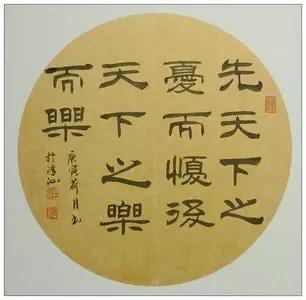 先天下之
憂而懮後
天下之樂
而樂
庚寅荷月書
於